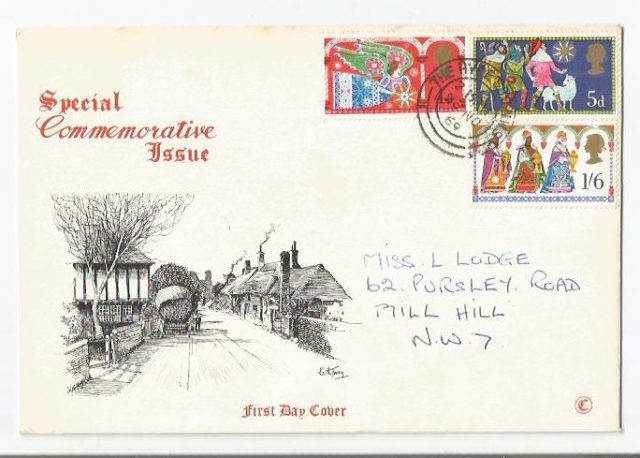 Special
Commemorative
Issue
5d
1/6
THE HY
NO
69
MISS. L LODGE
62. PURSLEY. ROAD
MILL HILL
N.W.7
First Day Cover
C